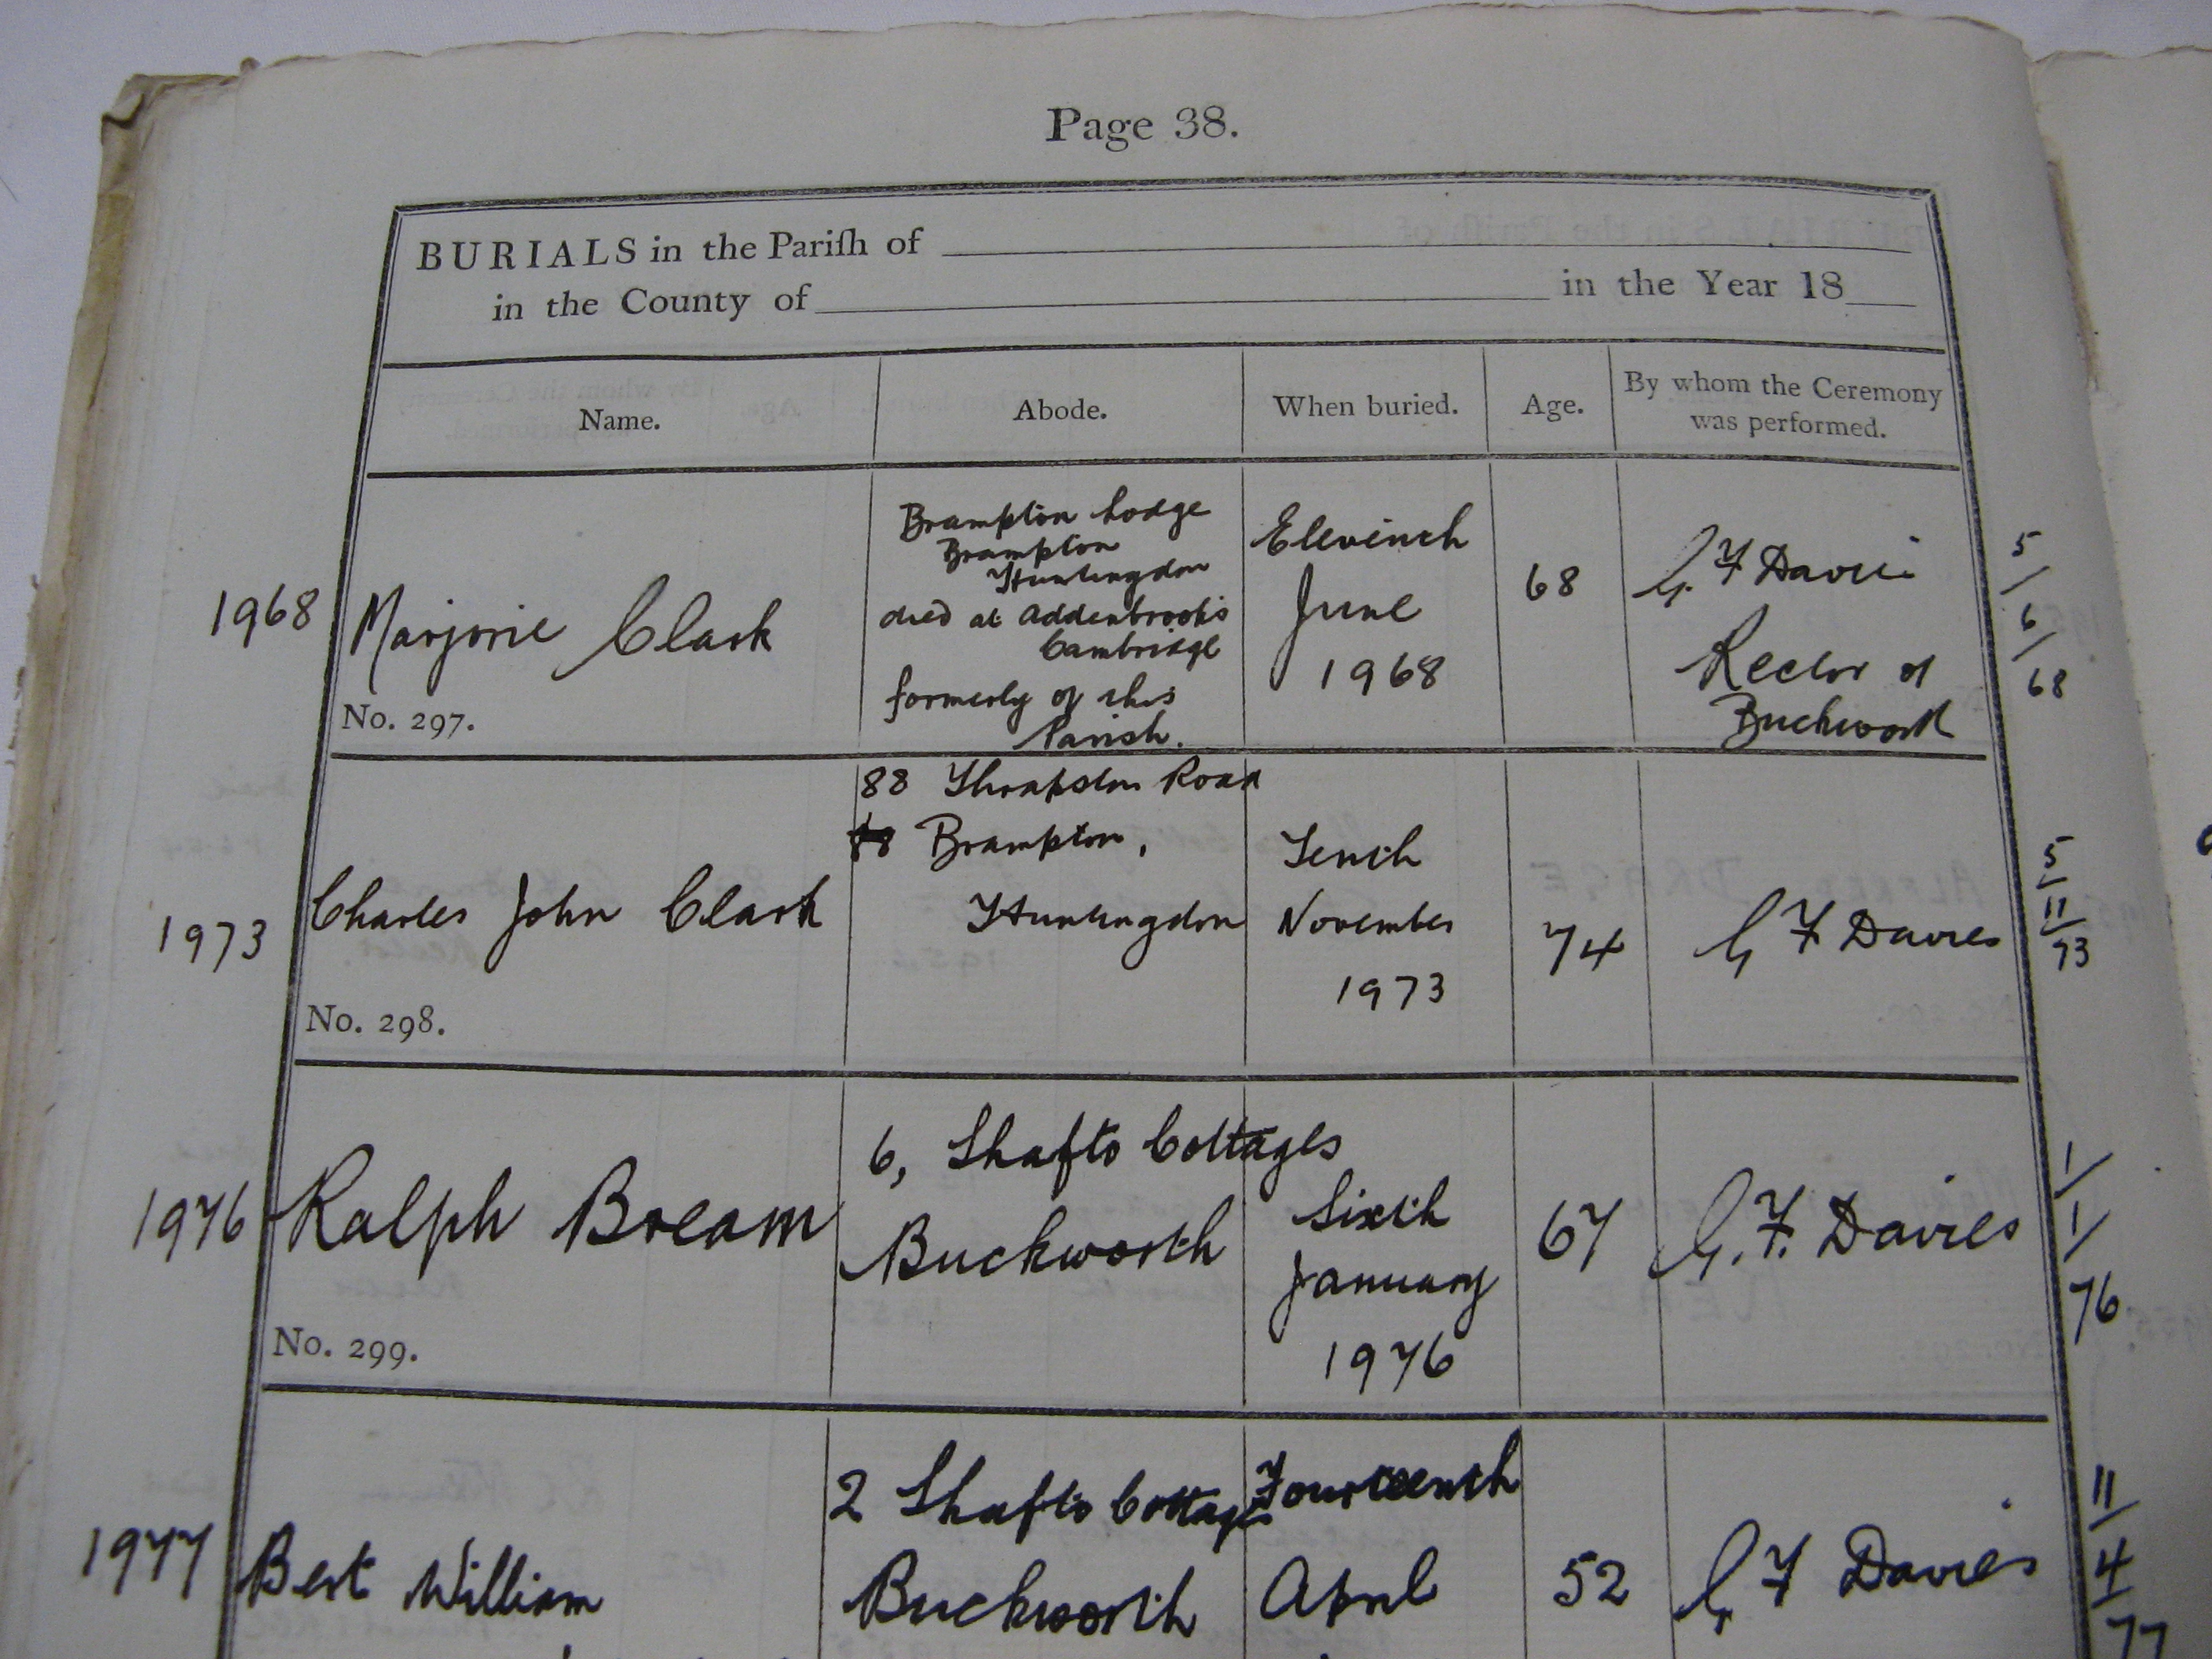 Page 38.
BURIALS in the Pariſh of
in the County of in the Year 18
Name. Abode. When buried. Age. By whom the Ceremony
was performed.
1968
Marjorie Clark
No. 297.
Brampton Lodge
Brampton
Huntingdon
died at Addenbrook's
Cambridge
formerly of this
Parish.
Eleventh
June
1968
68
G. F Davies
Rector of
Buckworth
5/
6/
68
1973
Charles John Clark
No. 298.
88 Thrapston Road
Brampton,
Huntingdon
Tenth
November
1973
74
G F Davies
5/
11/
73
1976
Ralph Bream
No. 299.
6, Shafto Cottages
Buckworth
Sixth
January
1976
67
G. F. Davies
1/
1/
76
1977
Bert William
2 Shafto Cottages
Buckworth
Fourteenth
April
52
G F Davies
11/
4/
77